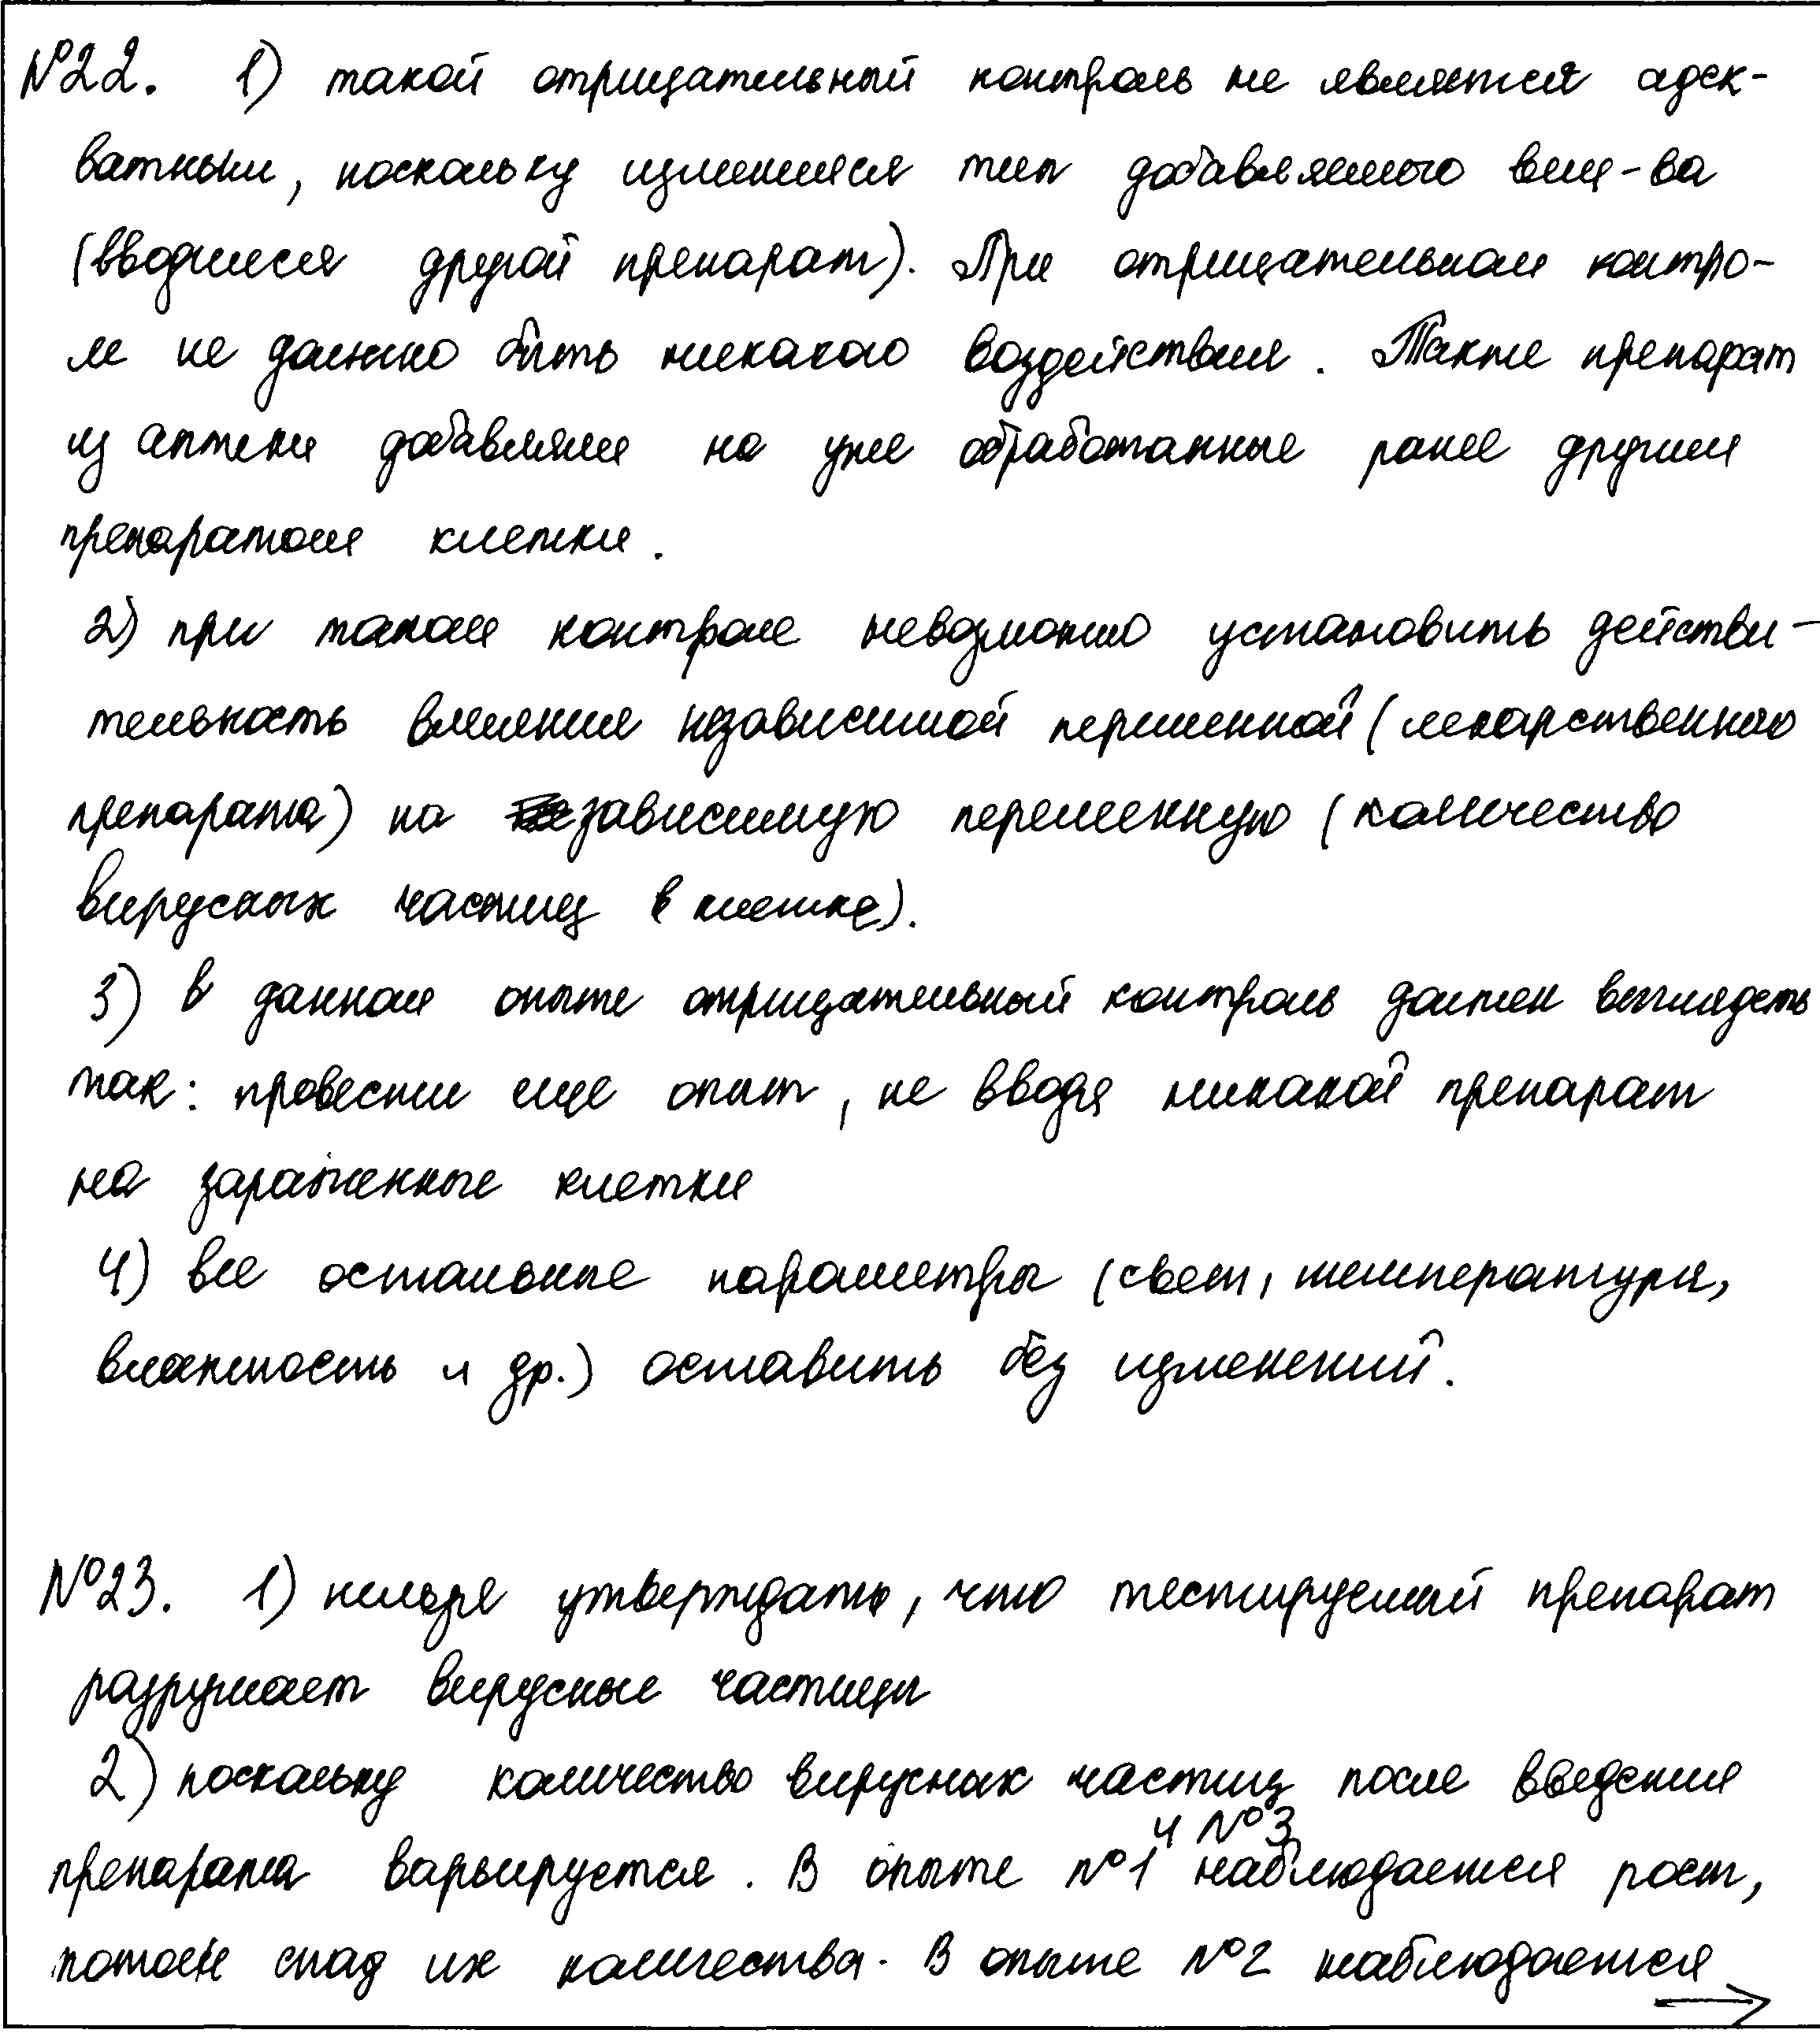 №22. 1) такой отрицательный контроль не является адек-
ватным, поскольку изменился тип добавляемого вещ-ва
(вводился другой препарат). При отрицательном контро-
ле не должно быть никакого воздействия. Также препарат
из аптеки добавляли на уже обработанные ранее другим
препаратом клетки.
2) при таком контроле невозможно установить действи-
тельность влияния независимой переменной (лекарственного
препарата) на зависимую переменную (количество
вирусных частиц в клетке).
3) в данном опыте отрицательный контроль должен выглядеть
так: провести еще опыт, не вводя никакой препарат
на зараженные клетки
4) все остальные параметры (свет, температура,
влажность и др.) оставить без изменений.
№23. 1) нельзя утверждать, что тестируемый препарат
разрушает вирусные частицы
2) поскольку количество вирусных частиц после введения
препарата варьируется. В опыте №1 и №3 наблюдается рост,
потом спад их количества. В опыте №2 наблюдается →